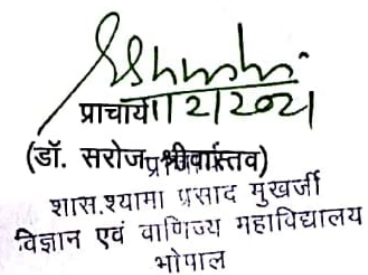 प्राचार्य 11/2/2021
(डॉ. सरोज श्रीवास्तव)
शास.श्यामा प्रसाद मुखर्जी
विज्ञान एवं वाणिज्य महाविद्यालय
भोपाल